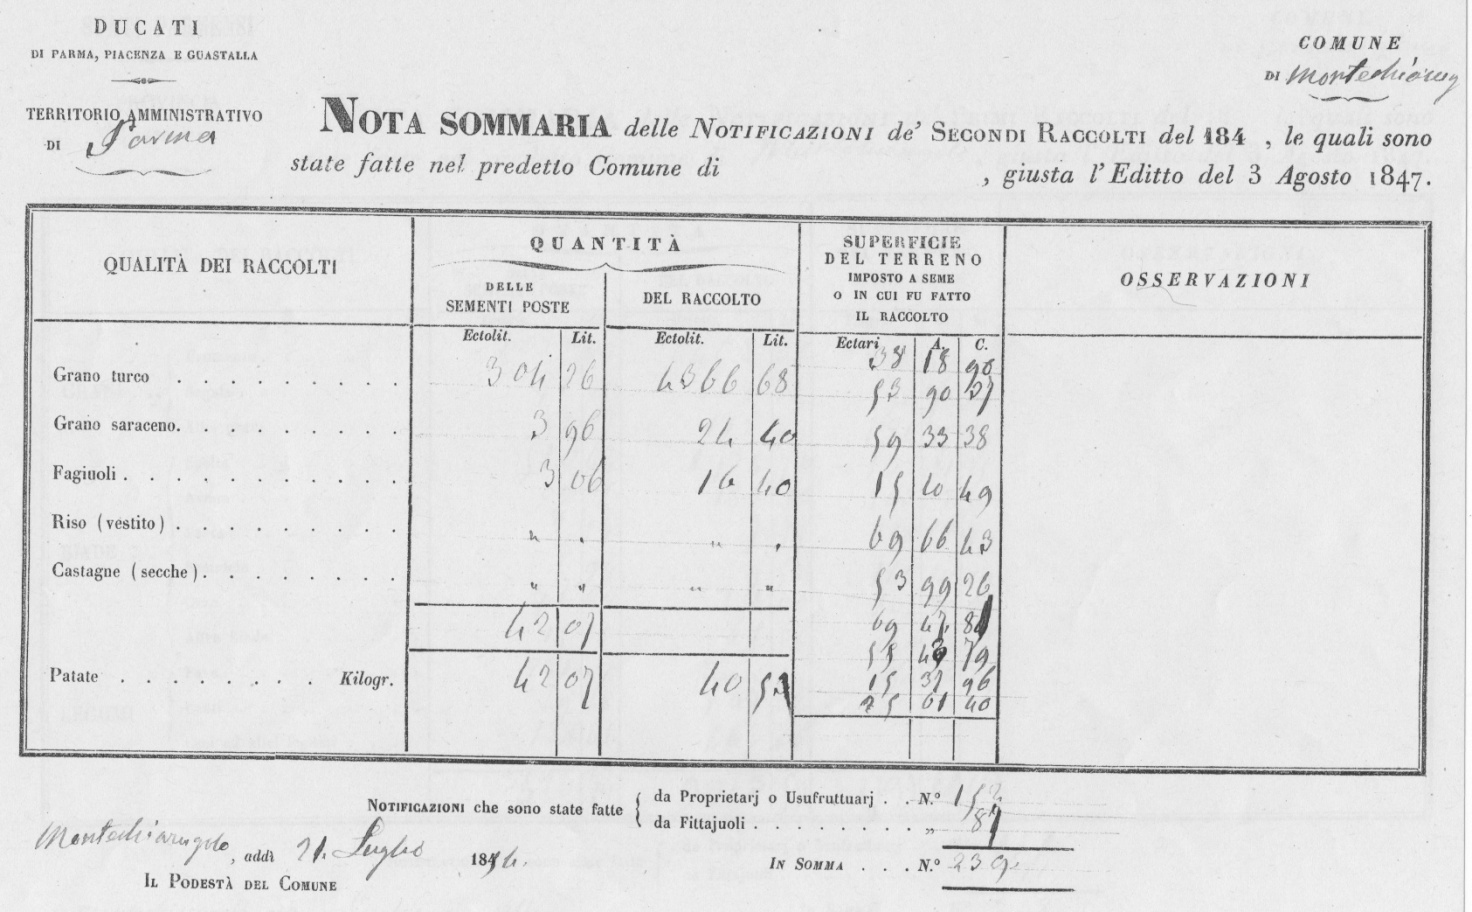 DUCATI
DI PARMA, PIACENZA E GUASTALLA
TERRITORIO AMMINISTRATIVO
DI Parma
COMUNE
DI Montechiarug
NOTA SOMMARIA delle NOTIFICAZIONI de' SECONDI RACCOLTI del 184 , le quali sono
state fatte nel predetto Comune di , giusta l'Editto del 3 Agosto 1847.
QUALITÀ DEI RACCOLTI
QUANTITÀ
DELLE
SEMENTI POSTE
DEL RACCOLTO
SUPERFICIE
DEL TERRENO
IMPOSTO A SEME
O IN CUI FU FATTO
IL RACCOLTO
OSSERVAZIONI
Ectolit. Lit. Ectolit. Lit. Ectari A. C.
38 18 90
Grano turco . . . . . . . . . . 304 26 4366 68
53 90 37
Grano saraceno. . . . . . . . . 3 96 24 40 59 33 38
Fagiuoli . . . . . . . . . . . . 3 06 16 40 15 40 49
Riso (vestito) . . . . . . . . . " " " " 69 66 43
Castagne (secche) . . . . . . . . " " " " 53 99 26
42 07 69 47
79
Patate . . . . . . . . Kilogr. 42 07 40 15 37 96
25 61 40
NOTIFICAZIONI che sono state fatte
da Proprietarj o Usufruttuarj . . N.º 152
da Fittajuoli . . . . . . . . „ 87
IN SOMMA . . . N.º 239
Montechiarugolo, addì 21. Luglio 1854.
IL PODESTÀ DEL COMUNE